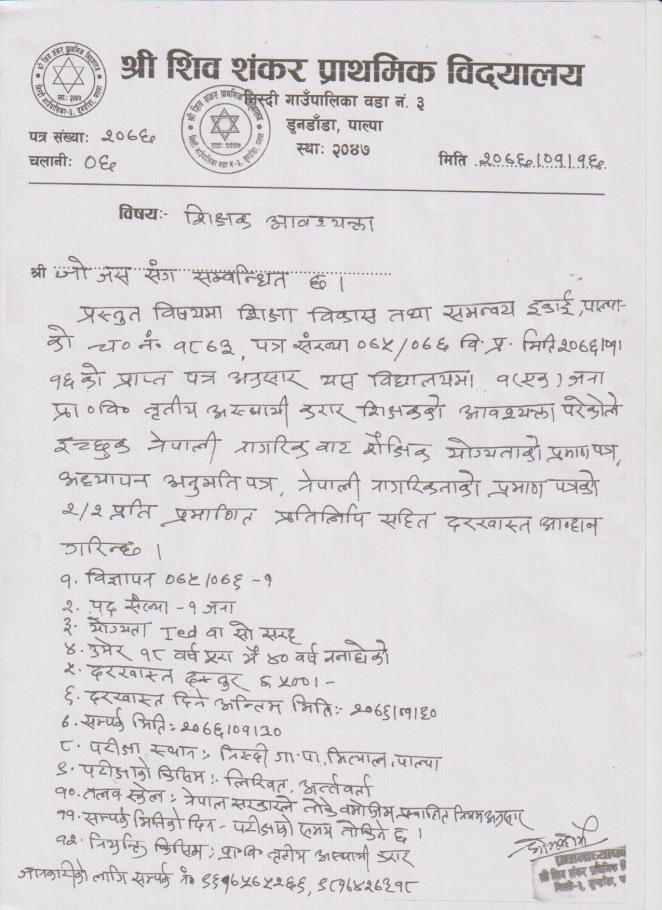 श्री शिव शंकर प्राथमिक विद्यालय
निस्दी गाउँपालिका वडा नं. ३
डुनडाँडा, पाल्पा
स्था: २०४७
पत्र संख्या: २०७६
चलानी: ०६
मिति २०७६/०१/१६
विषय:- शिक्षक आवश्यक्ता
श्री जो जस संग सम्बन्धित छ ।
प्रस्तुत विषयमा शिक्षा विकास तथा समन्वय इकाई, पाल्पा-
को च० नं० १८७३, पत्र संख्या ०७५/०७६ वि.प्र. मिति २०७६/०१/
१६ को प्राप्त पत्र अनुसार यस विद्यालयमा १(एक) जना
प्रा०वि० तृतीय अस्थायी करार शिक्षकको आवश्यक्ता परेकोले
इच्छुक नेपाली नागरिक बाट शैक्षिक योग्यताको प्रमाण पत्र,
अध्यापन अनुमति पत्र, नेपाली नागरिकताको प्रमाण पत्रको
२/२ प्रति प्रमाणित प्रतिलिपि सहित दरखास्त आव्हान
गरिन्छ ।
१. विज्ञापन ०७५/०७६ -१
२. पद संख्या -१ जना
३. योग्यता Ied वा सो सरह
४. उमेर १८ वर्ष पुरा भै ४० वर्ष ननाघेको
५. दरखास्त दस्तुर रु ५००।-
६. दरखास्त दिने अन्तिम मिति:- २०७६/०१/३०
७. सम्पर्क मिति:- २०७६/०१/३०
८. परीक्षा स्थान:- निस्दी गा.पा. मित्याल, पाल्पा
९. परीक्षाको किसिम:- लिखित, अर्न्तवर्ता
१०. तलव स्केल:- नेपाल सरकारले तोके बमोजिम प्रचलित नियम अनुसार
११. सम्पर्क मितिको दिन - परीक्षाको समय तोकिने छ ।
१२. नियुक्ति किसिम: प्रा०वि० तृतीय अस्थायी करार
जानकारीको लागि सम्पर्क नं०
प्रधानाध्यापक